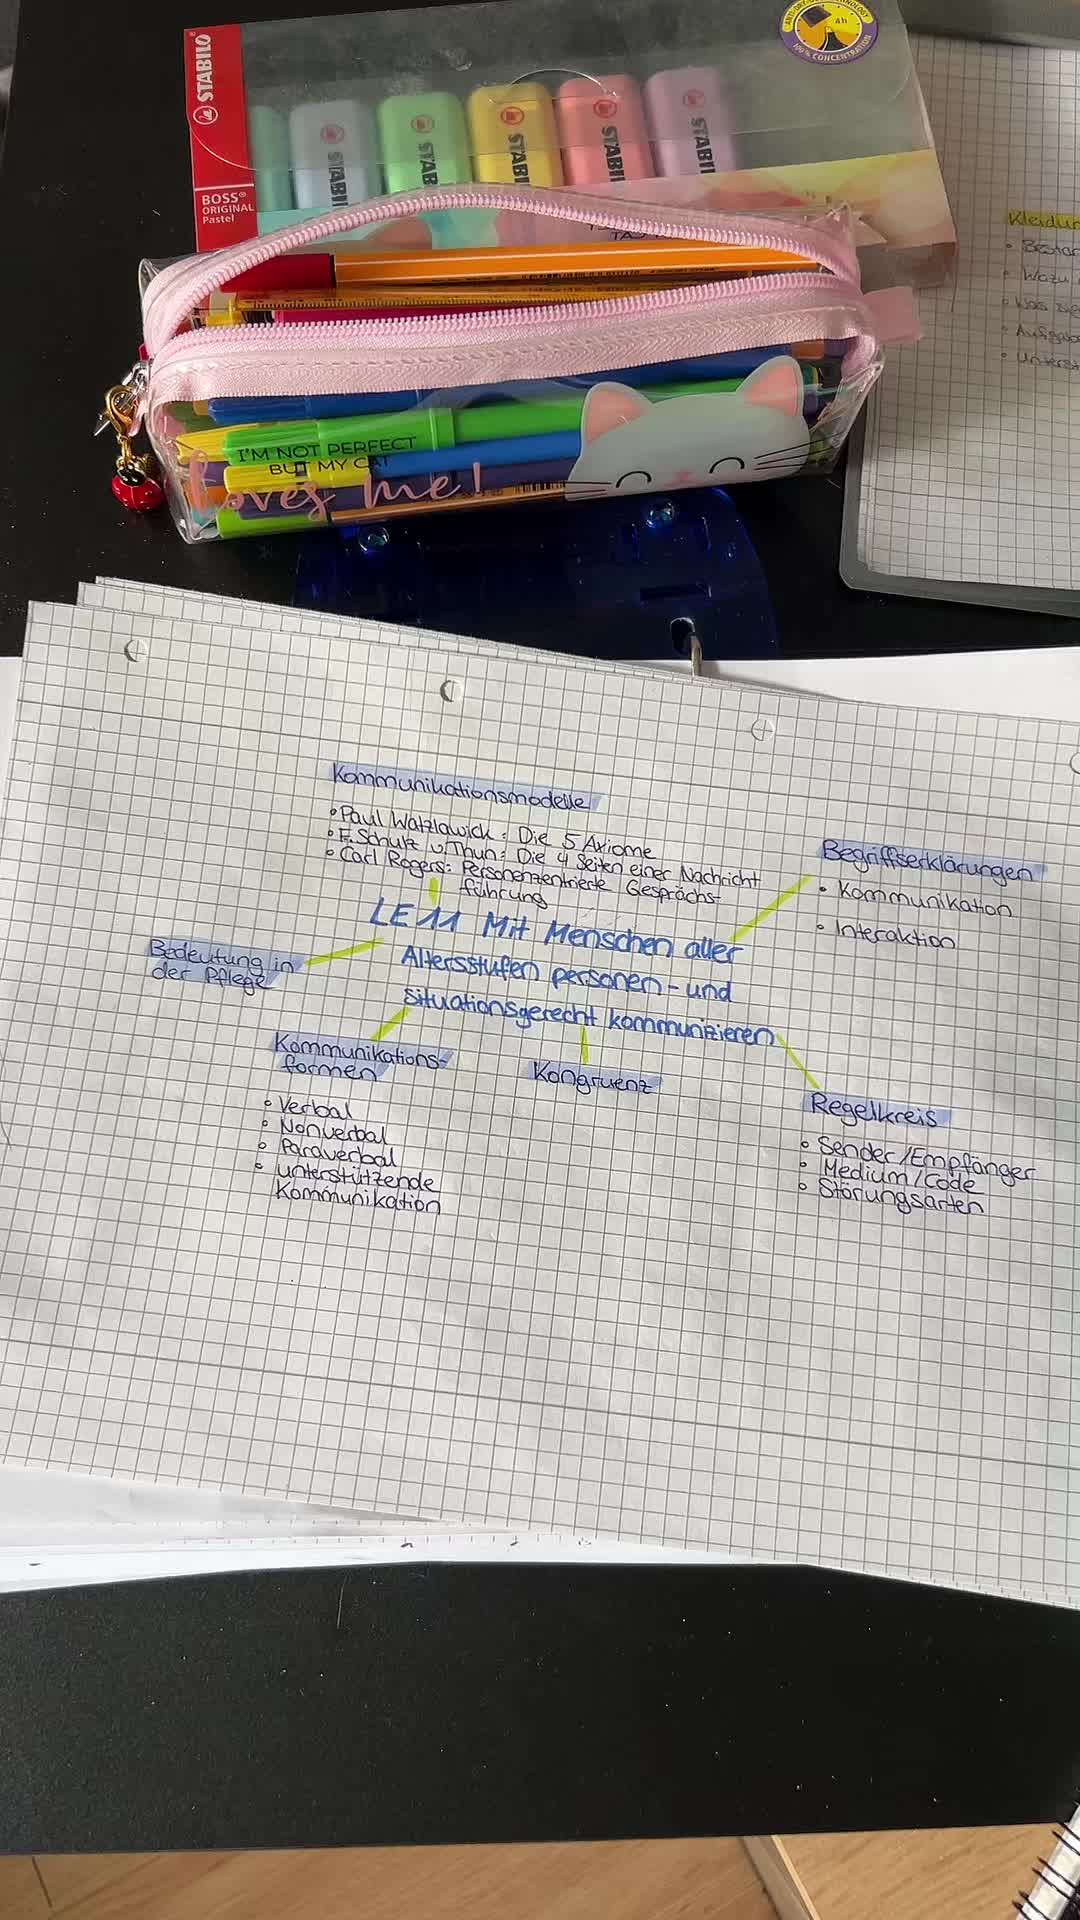 STABILO
BOSS®
ORIGINAL
Pastel
100% CONCENTRATION
STABIL
STABI
STABI
STABIL
I'M NOT PERFECT
BUT MY CAT
loves me!
Kleidun
• Wozu
Kommunikationsmodelle
• Paul Watzlawick: Die 5 Axiome
• F. Schulz v. Thun: Die 4 Seiten einer Nachricht
• Carl Rogers: Personenzentrierte Gesprächs-
führung
Begriffserklärungen
• Kommunikation
• Interaktion
LE 11 Mit Menschen aller
Altersstufen personen- und
situationsgerecht kommunizieren
Bedeutung in
der Pflege
Kommunikations-
formen
• Verbal
• Nonverbal
• Paraverbal
• unterstützende
Kommunikation
Kongruenz
Regelkreis
• Sender/Empfänger
• Medium/Code
• Störungsarten